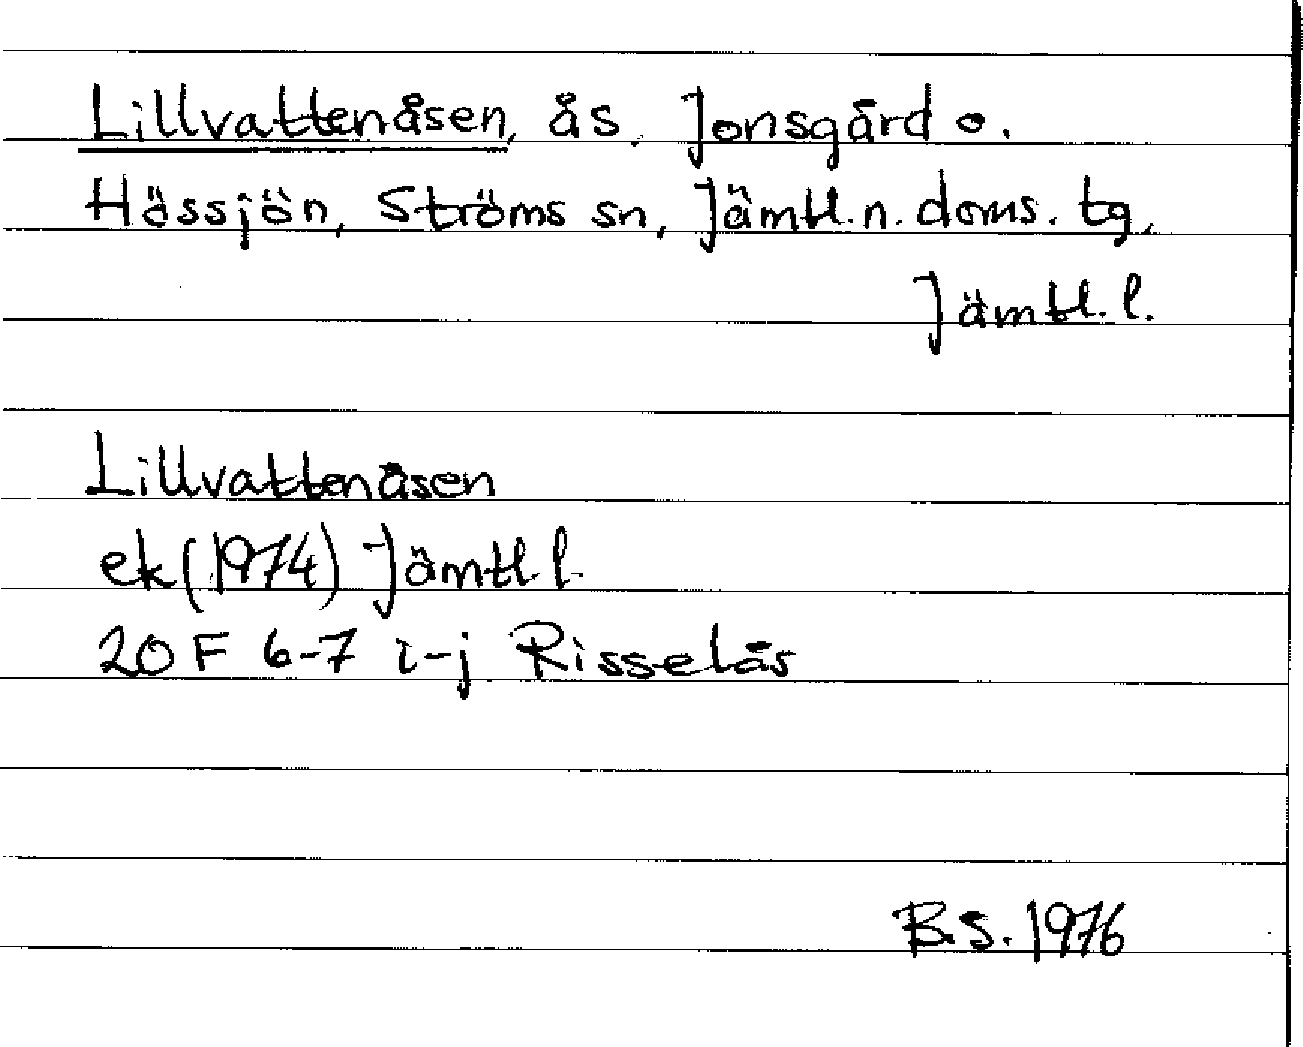 Lillvattenåsen, ås, Jonsgård o.
Hössjön, Ströms sn, Jämtl. n. doms. tg,
Jämtl. l.
Lillvattenåsen
ek (1974) Jämtl. l.
20 F 6-7 i-j Risselås
B.S. 1976